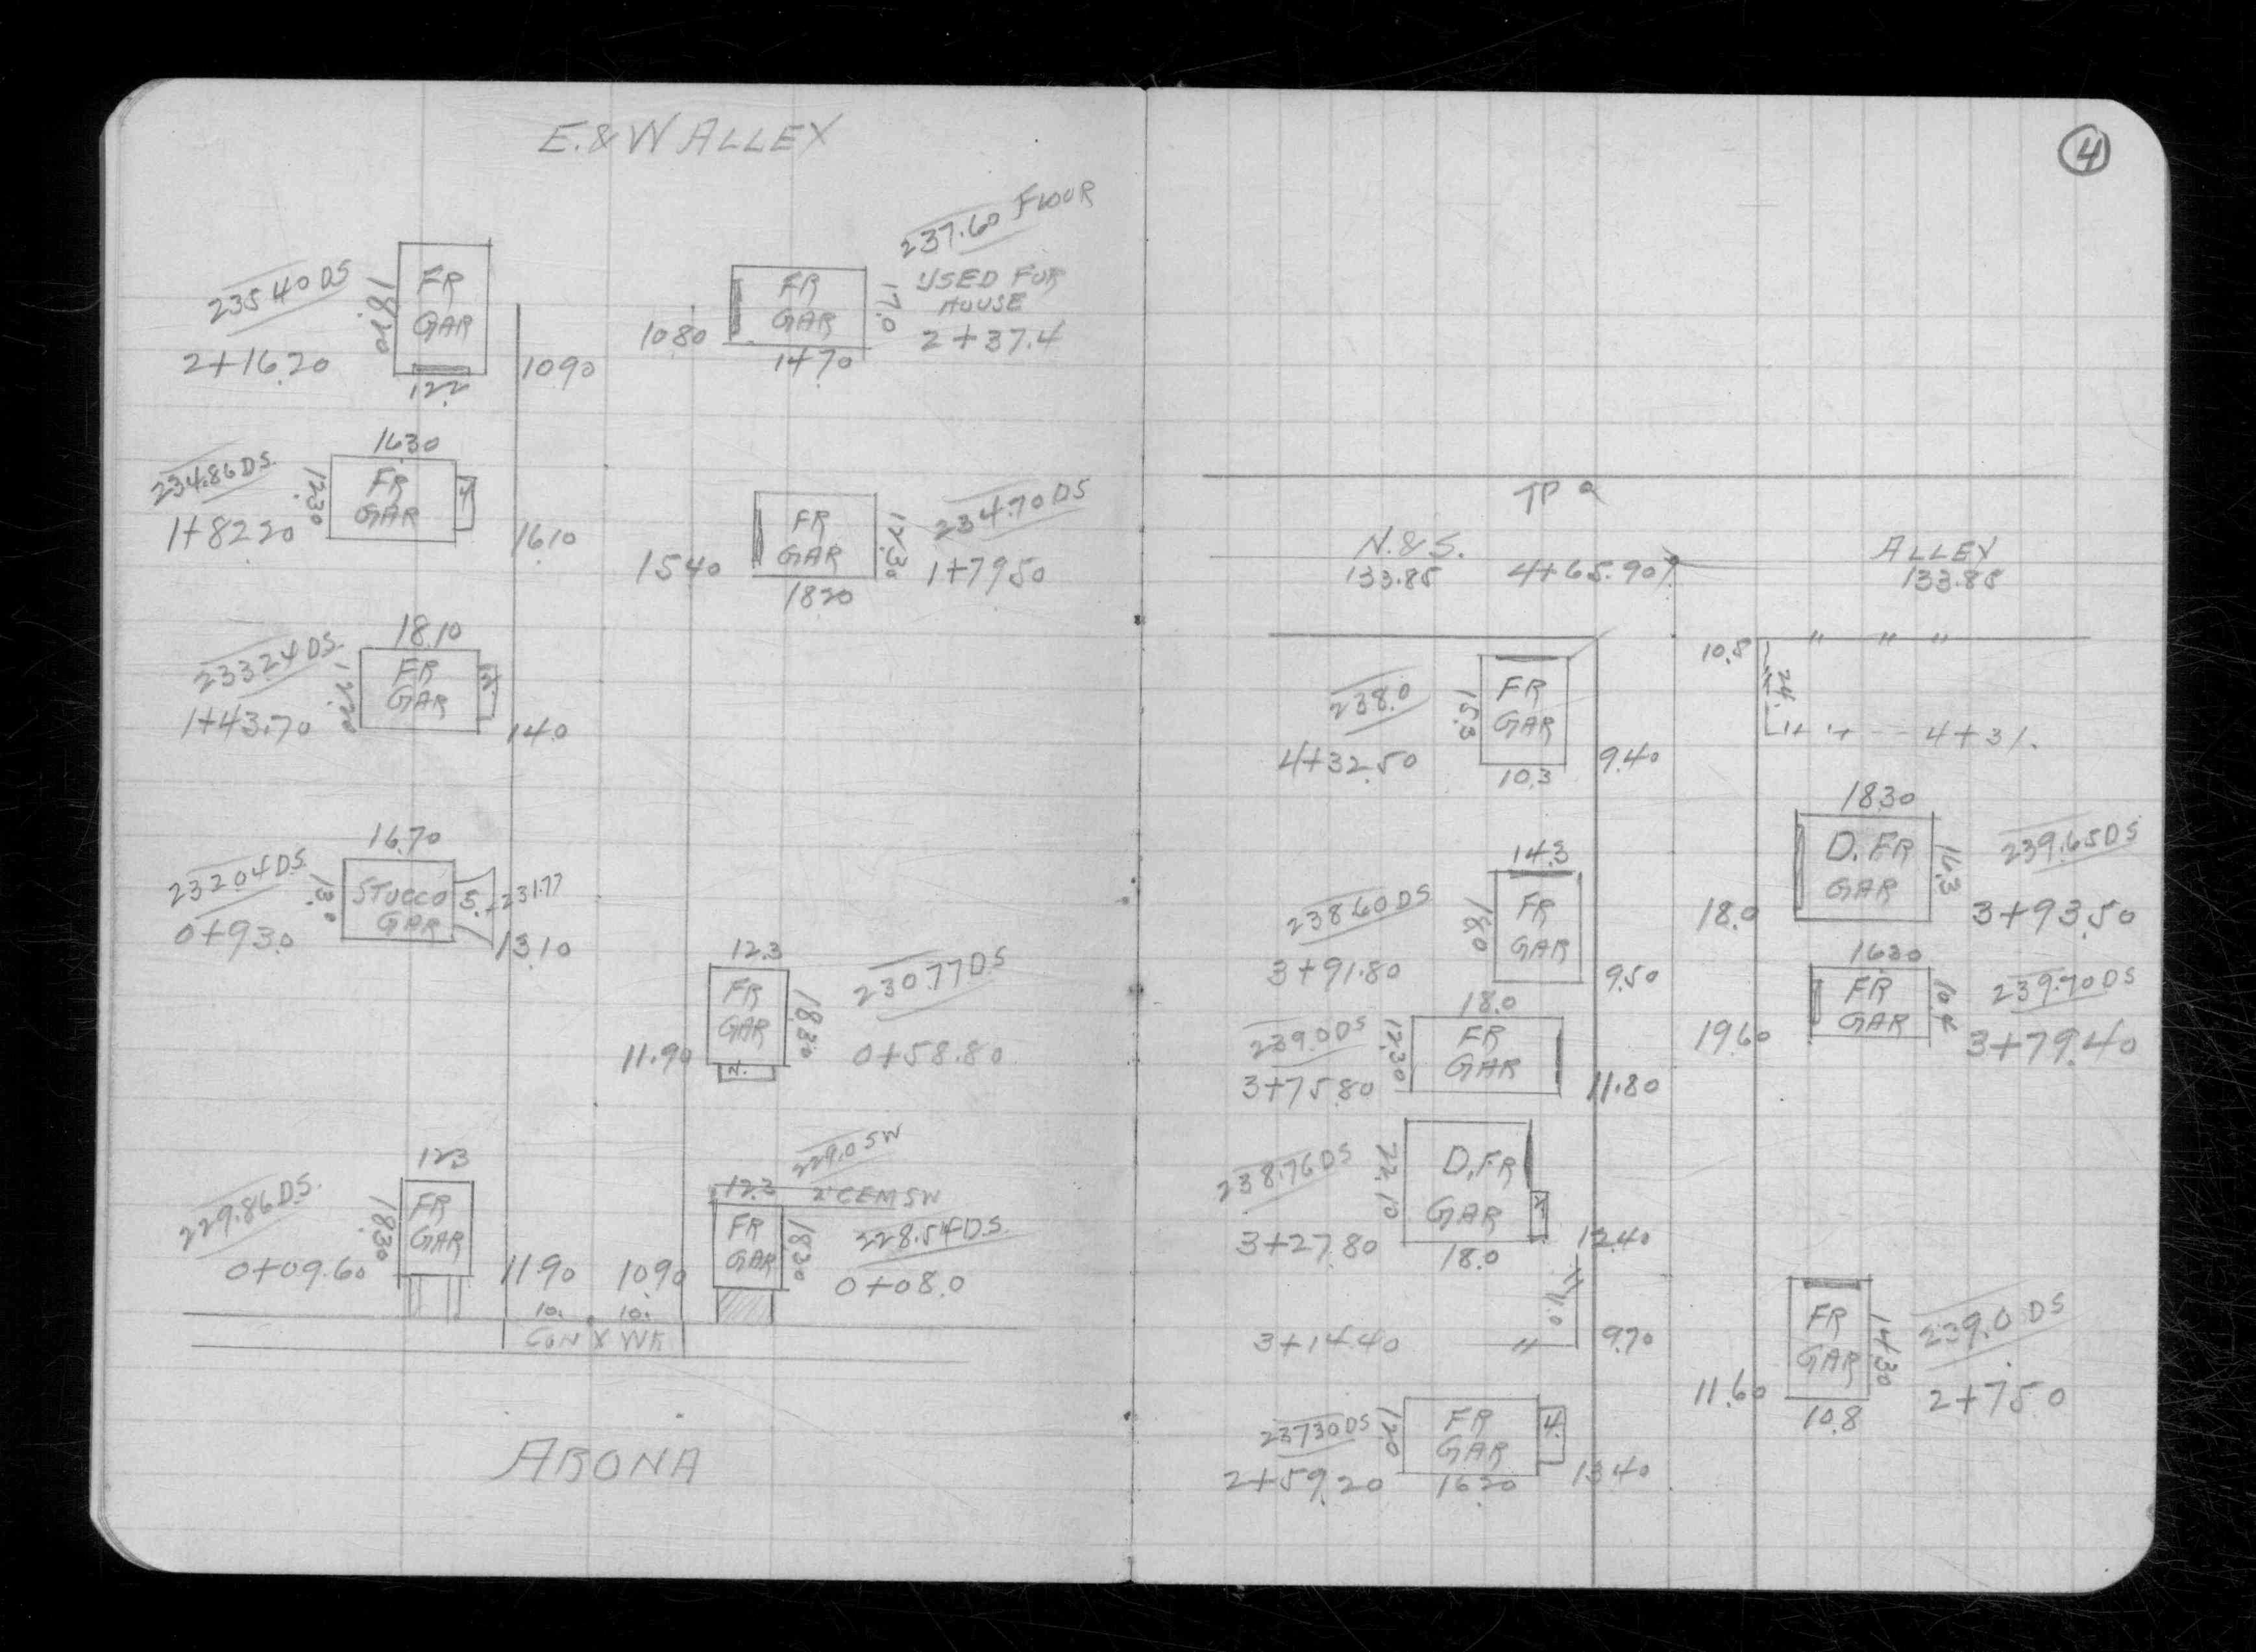 E. & W ALLEY
237.60 FLOOR
235.40 DS
18.20
FR
GAR
12.2
2+16.20
10.90
10.80
FR
GAR
17.0
14.70
USED FOR
HOUSE
2+37.4
16.30
234.86 DS.
12.30
FR
GAR
4.
1+82.20
16.10
15.40
FR
GAR
12.30
18.20
234.70 DS
1+79.50
18.10
233.24 DS.
12.20
FR
GAR
1+43.70
14.0
16.70
232.04 DS.
13.0
STUCCO
GAR
5.
231.77
0+93.0
13.10
12.3
FR
GAR
18.30
230.77 DS
11.90
0+58.80
12.3
229.86 DS.
18.30
FR
GAR
0+09.60
11.90
10.90
229.0 SW
12.3
2' CEM SW
FR
GAR
18.30
228.54 DS.
0+08.0
10. 10.
CON X WK
ARONA
4
TP
N. & S. ALLEY
133.85 4+65.90 133.85
10.8 " " "
24.
4+31.
238.0
15.3
FR
GAR
4+32.50
10.3
9.40
18.30
D. FR
GAR
14.3
239.65 DS
18.0
3+93.50
14.3
238.60 DS
18.0
FR
GAR
3+91.80
9.50
16.30
FR
GAR
239.70 DS
19.60
3+79.40
18.0
239.0 DS
12.30
FR
GAR
3+75.80
11.80
238.76 DS
22.10
D. FR
GAR
3+27.80
18.0
12.40
11.0
3+14.40
9.70
FR
GAR
14.30
239.0 DS
11.60
10.8
2+75.0
237.30 DS
12.0
FR
GAR
4.
2+59.20
16.20
13.40